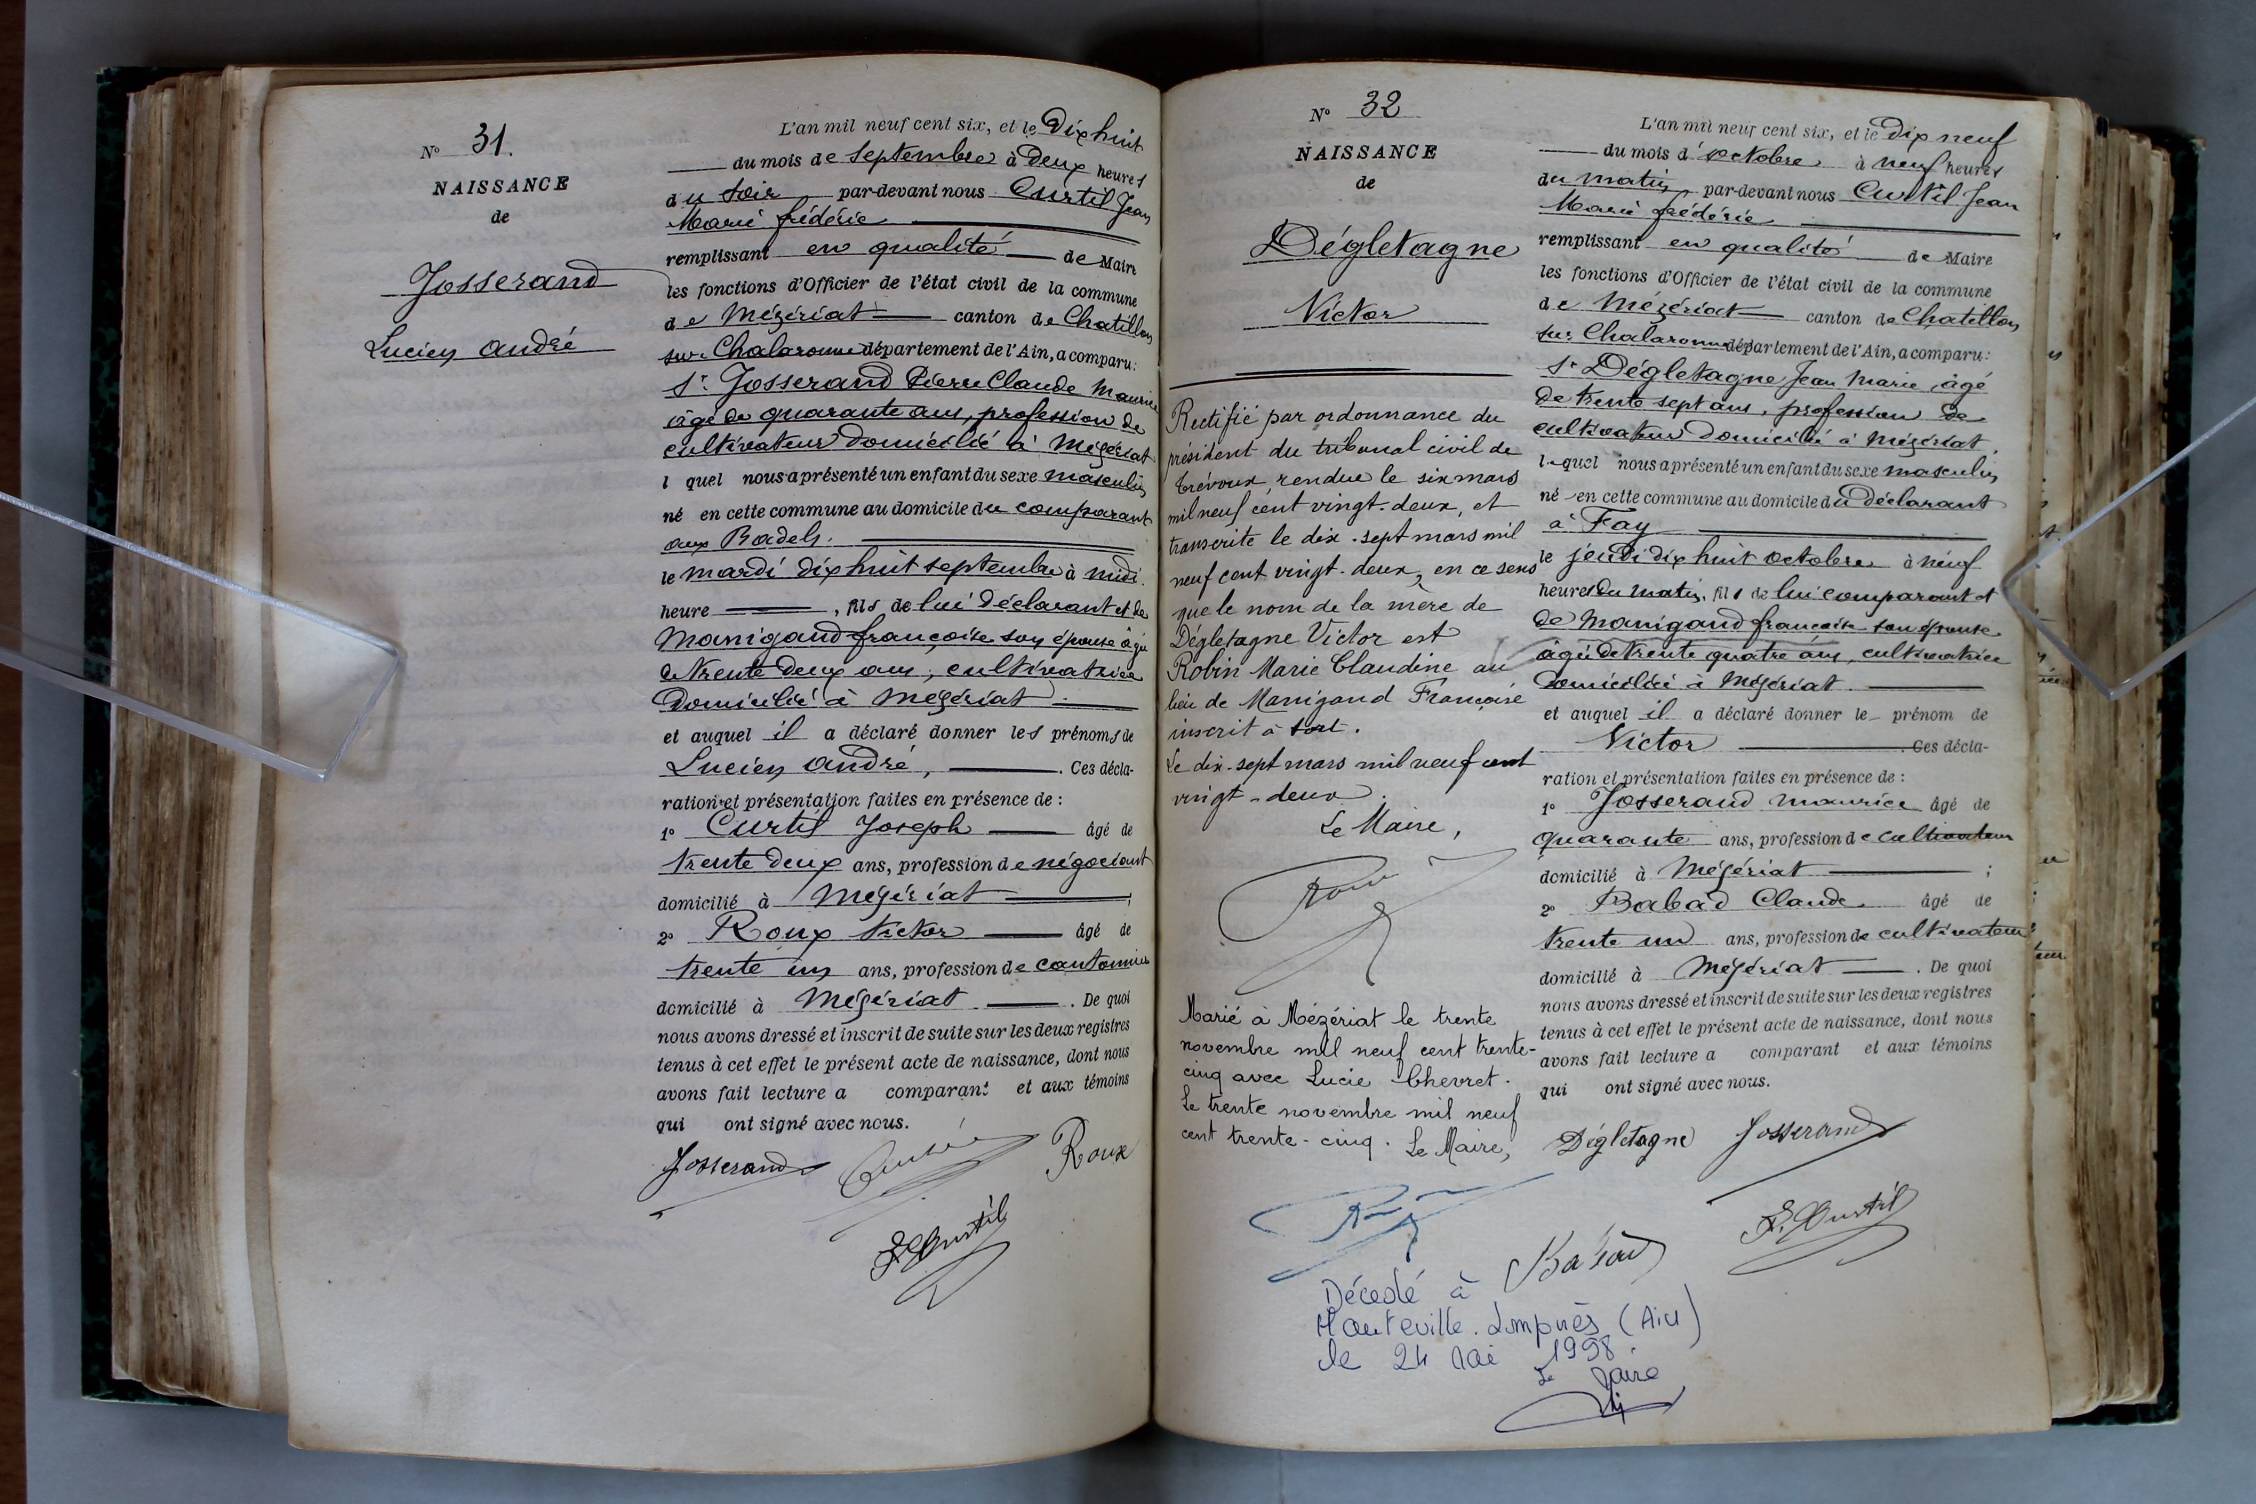 Nº 31.
NAISSANCE
de
Josserand
Lucien André
L'an mil neuf cent six, et le Dix huit
du mois de Septembre à Deux heures
du Soir par-devant nous Curtil Jean
Marie frédéric
remplissant en qualité de Maire
les fonctions d'Officier de l'état civil de la commune
de Mézériat canton de Chatillon
sur Chalaronne département de l'Ain, a comparu:
Sr Josserand Pierre Claude Maurice
âgé de quarante ans, profession de
cultivateur domicilié à Mézériat
lequel nous a présenté un enfant du sexe masculin
né en cette commune au domicile du comparant
aux Badels.
le mardi dix huit septembre à midi
heure, fils de lui déclarant et de
Manigand françoise son épouse âgée
de trente deux ans, cultivatrice
domicilié à Mézériat
et auquel il a déclaré donner les prénoms de
Lucien André, . Ces décla-
ration et présentation faites en présence de :
1º Curtil Joseph âgé de
trente deux ans, profession de négociant
domicilié à Mézériat ;
2º Roux Victor âgé de
trente un ans, profession de cantonnier
domicilié à Mézériat . De quoi
nous avons dressé et inscrit de suite sur les deux registres
tenus à cet effet le présent acte de naissance, dont nous
avons fait lecture a comparant et aux témoins
qui ont signé avec nous.
Josserand Roux
F. Curtil
Nº 32
NAISSANCE
de
Dégletagne
Victor
Rectifié par ordonnance du
président du tribunal civil de
Trévoux, rendue le six mars
mil neuf cent vingt-deux, et
transcrite le dix-sept mars mil
neuf cent vingt-deux, en ce sens
que le nom de la mère de
Dégletagne Victor est
Robin Marie Claudine au
lieu de Manigand Françoise
inscrit à tort.
Le dix-sept mars mil neuf cent
vingt-deux.
Le Maire,
Marié à Mézériat le trente
novembre mil neuf cent trente-
cinq avec Lucie Chevret.
Le trente novembre mil neuf
cent trente-cinq. Le Maire,
L'an mil neuf cent six, et le Dix neuf
du mois d'octobre à neuf heures
du matin par-devant nous Curtil Jean
Marie frédéric
remplissant en qualité de Maire
les fonctions d'Officier de l'état civil de la commune
de Mézériat canton de Chatillon
sur Chalaronne département de l'Ain, a comparu:
Sr Dégletagne Jean Marie, âgé
de trente sept ans, profession de
cultivateur domicilié à Mézériat,
lequel nous a présenté un enfant du sexe masculin
né en cette commune au domicile du déclarant
à Fay
le jeudi dix huit octobre à neuf
heures du matin, fils de lui comparant et
de Manigand francoise son épouse
âgée de trente quatre ans, cultivatrice
domiciliée à Mézériat.
et auquel il a déclaré donner le prénom de
Victor . Ces décla-
ration et présentation faites en présence de :
1º Josserand Maurice âgé de
quarante ans, profession de cultivateur
domicilié à Mézériat ;
2º Babad Claude âgé de
trente un ans, profession de cultivateur
domicilié à Mézériat . De quoi
nous avons dressé et inscrit de suite sur les deux registres
tenus à cet effet le présent acte de naissance, dont nous
avons fait lecture a comparant et aux témoins
qui ont signé avec nous.
Dégletagne Josserand
Babad F. Curtil
Décédé à
Hauteville-Lompnès (Ain)
le 24 Mai 1998.
Le Maire